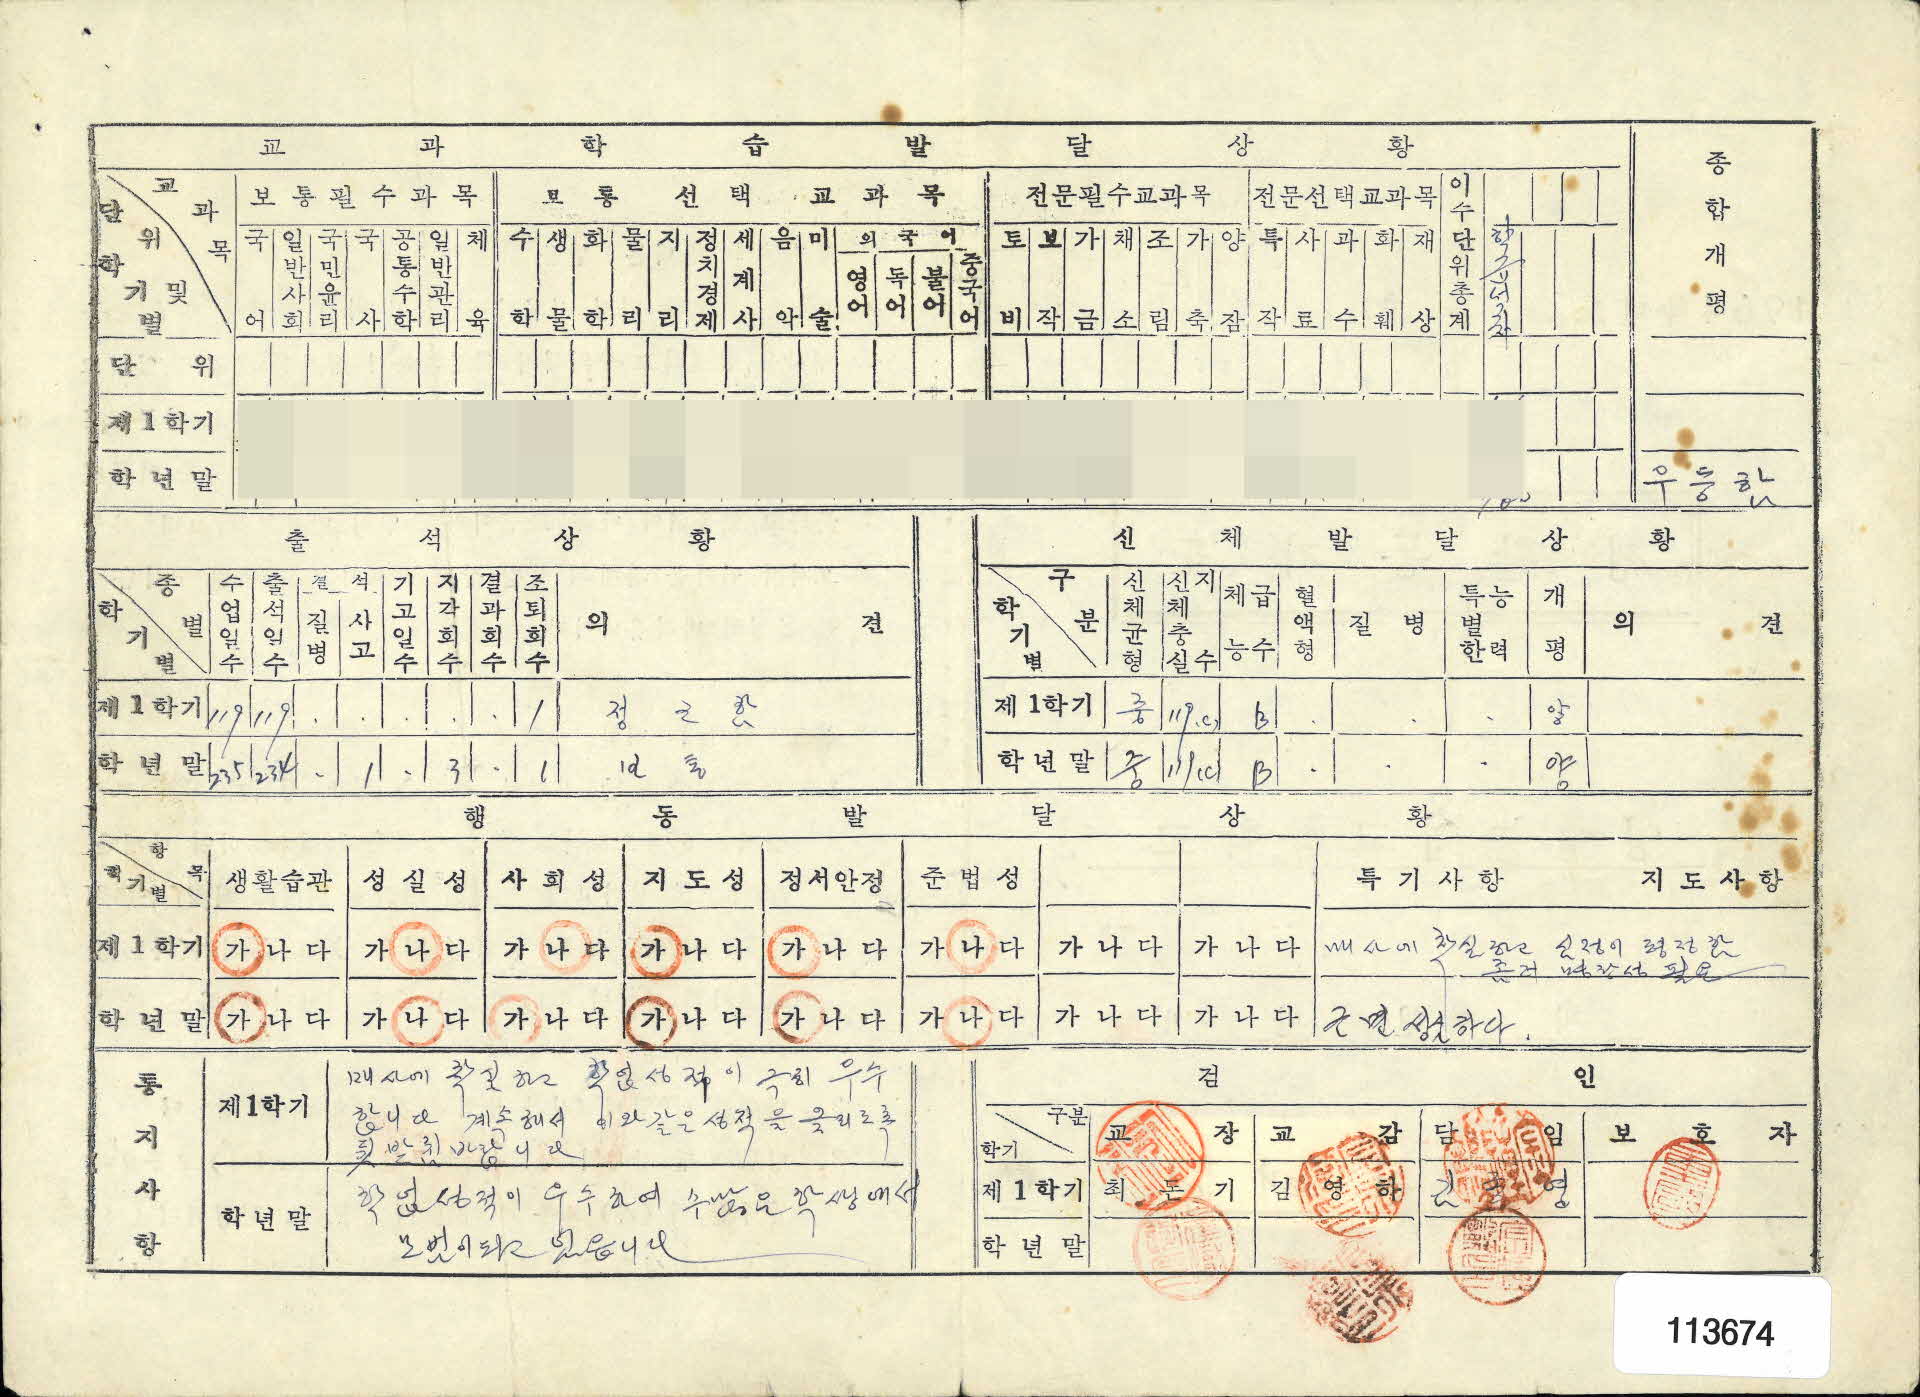 교 과 학 습 발 달 상 황
종합개평
교과목 단위 및 학기별
보통필수과목
보통선택교과목
전문필수교과목
전문선택교과목
이수단위총계
학급석차
국어 일반사회 국민윤리 국사 공통수학 일반관리 체육
수학 생물 화학 물리 지리 정치경제 세계사 음악 미술
외국어
영어 독어 불어 중국어
토비 보작 가금 채소 조림 가축 양잠
특작 사료 과수 화훼 재상
단 위
제1학기
학년말
우등함
출 석 상 황
종별 학기별 수업일수 출석일수 결석 질병 사고 기고일수 지각회수 결과회수 조퇴회수 의 견
제1학기 119 119 . . . . . 1 정근함
학년말 235 234 . 1 . 3 . 1 보통
신 체 발 달 상 황
구분 학기별 신체균형 신체충실지수 체능급수 혈액형 질병 특별능한력 개평 의 견
제1학기 중 119.(c) B . . . 양
학년말 중 119(c) B . . . 양
행 동 발 달 상 황
항목 학기별 생활습관 성실성 사회성 지도성 정서안정 준법성 특기사항 지도사항
제1학기 가나다 가나다 가나다 가나다 가나다 가나다 가나다 가나다 매사에 착실하고
좀더 명랑성 필요
학년말 가나다 가나다 가나다 가나다 가나다 가나다 가나다 가나다 근면 성실하다.
통지사항
제1학기
매사에 착실하고 학업성적이 극히 우수
합니다 계속해서 이와같은 성적을 올리도록
뒷받침 바랍니다
학년말
학업성적이 우수하여 수많은 학생에서
모범이 되고 있읍니다
검 인
구분 학기 교장 교감 담임 보호자
제1학기 최돈기 김영하 김 영
학년말
113674